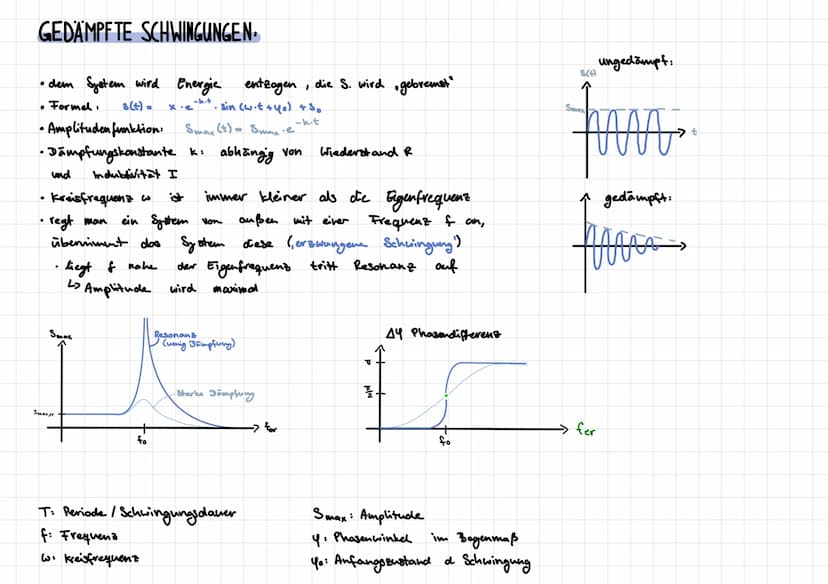 GEDÄMPFTE SCHWINGUNGEN.
• dem System wird Energie entzogen, die S. wird „gebremst“
• Formel: s(t) = x · e^-k·t · sin (ω·t + φ₀) + s₀
• Amplitudenfunktion: Smax(t) = Smax · e^-k·t
• Dämpfungskonstante k: abhängig von Wiederstand R
und Induktivität I
• Kreisfrequenz ω ist immer kleiner als die Eigenfrequenz
• regt man ein System von außen mit einer Frequenz f an,
übernimmt das System diese („erzwungene Schwingung“)
• liegt f nahe der Eigenfrequenz tritt Resonanz auf
↳ Amplitude wird maximal
ungedämpft:
s(t)
Smax
t
gedämpft:
Smax
Resonanz
(wenig Dämpfung)
Starke Dämpfung
f₀
fer
Δφ Phasendifferenz
π
π/2
f₀
fer
T: Periode / Schwingungsdauer
f: Frequenz
ω: Kreisfrequenz
Smax: Amplitude
φ: Phasenwinkel im Bogenmaß
φ₀: Anfangszustand d Schwingung